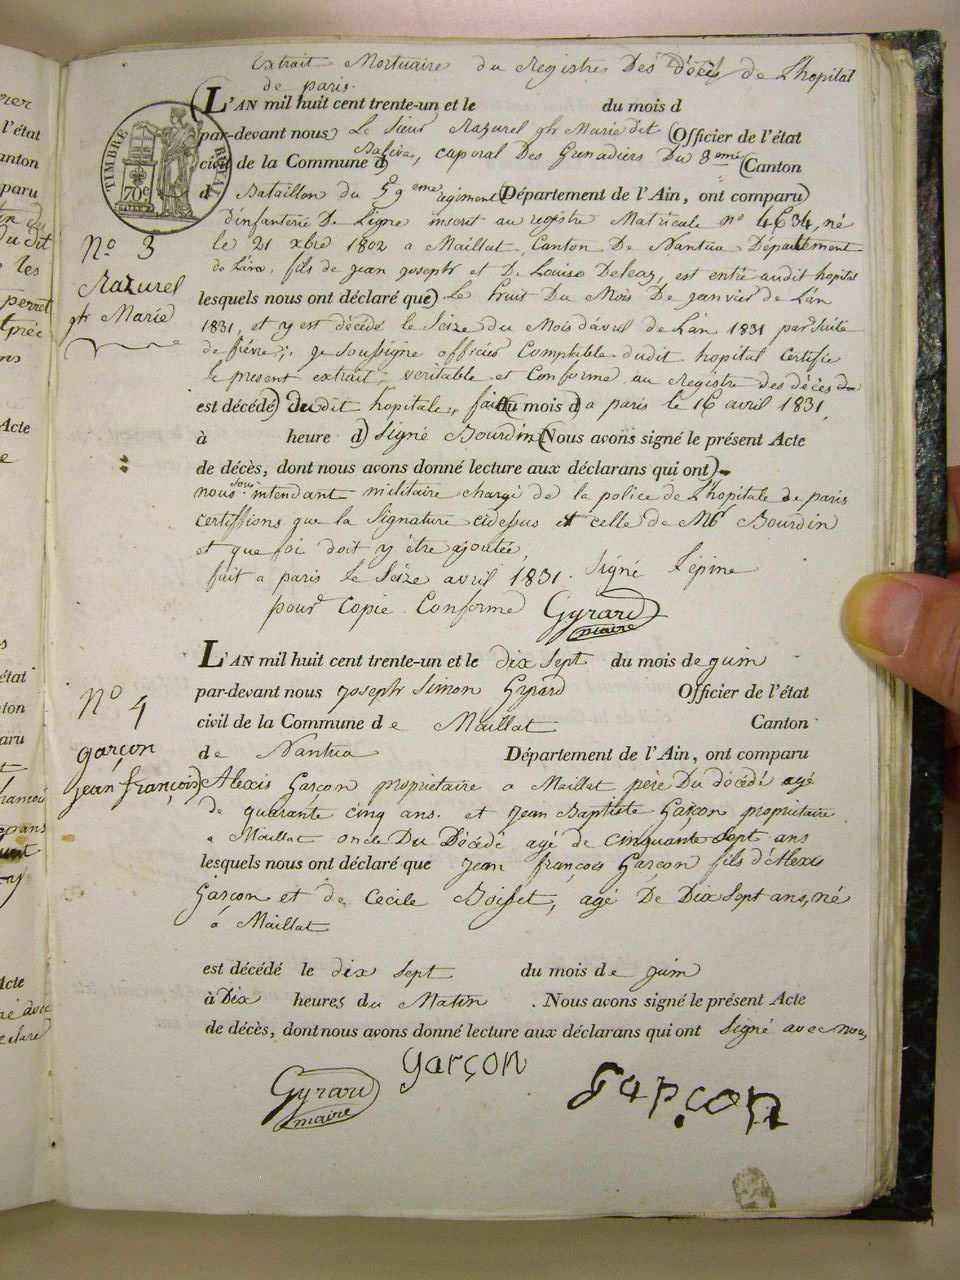 Extrait Mortuaire du Registre Des décés de L'hopital
de paris.
L'AN mil huit cent trente-un et le du mois d
par-devant nous Le Sieur Razurel jh Marie dit (Officier de l'état
civil de la Commune d) caporal Des Grenadiers Du 3eme (Canton
d Bataillon du 59eme regiment (Département de l'Ain, ont comparu)
d'infanterie De Ligne inscrit au registre Matricule no 4634, né
le 21 xbre 1802 a Maillat, Canton De Nantua Département
de L'ain, fils de jean joseph et De Louise Deleaz, est entré audit hopital
lesquels nous ont déclaré que) Le huit Du Mois De janvier de L'an
1831, et y est décédé le Seize du Mois d'avril de L'an 1831 par Suite
de fièvre; je Soussigné officier Comptable dudit hopital certifie
le present extrait, veritable et Conforme au Registre des décès de
est décédé) dudit hopitale, fait (du mois d) a paris le 16 avril 1831,
à heure d) Signé Bourdin (Nous avons signé le présent Acte
de décès, dont nous avons donné lecture aux déclarans qui ont)
nous Sous intendant militaire chargé de la police de L'hopitale de paris
certiffions que la Signature cidessus et celle de Mr Bourdin
et que foi doit y être ajoutée,
fait a paris le Seize avril 1831. Signé Lépine
pour Copie Conforme Gyrard
maire
TIMBRE ROYAL
70c
No 3
Razurel
jh Marie
L'AN mil huit cent trente-un et le dix sept du mois de juin
par-devant nous joseph Simon Gyrard Officier de l'état
civil de la Commune de Maillat Canton
de Nantua Département de l'Ain, ont comparu
Alexis Garçon propriétaire a Maillat père Du décédé agé
de quarante cinq ans. et jean Baptiste Garçon propriétaire
a Maillat oncle Du Décédé agé de cinquante sept ans
lesquels nous ont déclaré que jean françois Garçon fils d'Alexis
Garçon et de Cecile Boisset, agé De Dix Sept ans, né
a Maillat
est décédé le dix sept du mois de juin
à Dix heures du Matin . Nous avons signé le présent Acte
de décès, dont nous avons donné lecture aux déclarans qui ont Signé avec nous,
No 4
garçon
jean françois
garçon
Gyrard
maire
Garçon